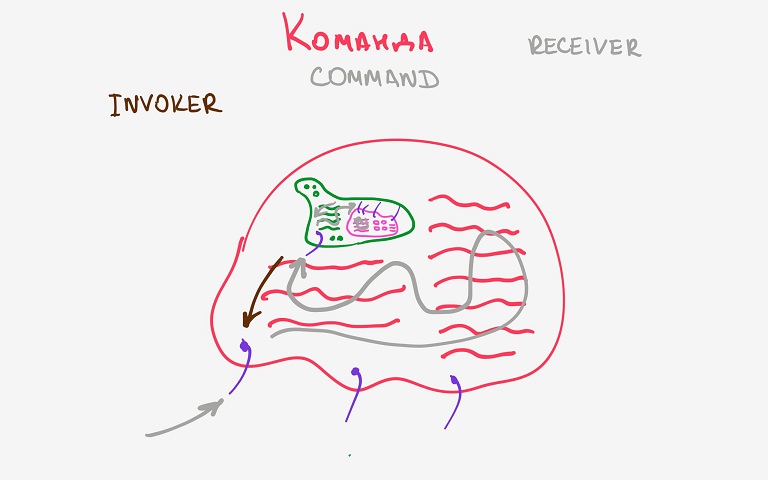 Команда
COMMAND
RECEIVER
INVOKER